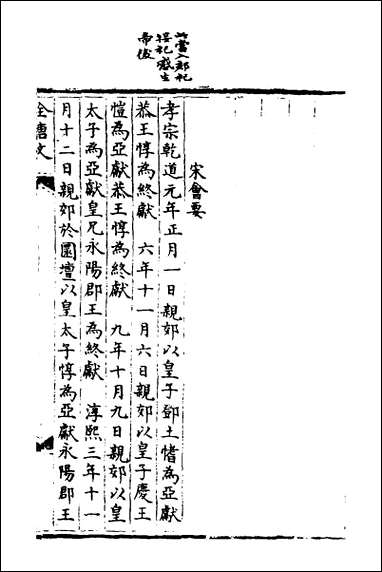 此當入郊祀
接祀感生
帝後
宋會要
孝宗乾道元年正月一日親郊以皇子鄧土愭為亞獻
恭王惇為終獻　六年十一月六日親郊以皇子慶王
愷為亞獻恭王惇為終獻　九年十月九日親郊以皇
太子為亞獻皇兄永陽郡王為終獻　淳熙三年十一
月十二日親郊於圜壇以皇太子惇為亞獻永陽郡王
全唐文